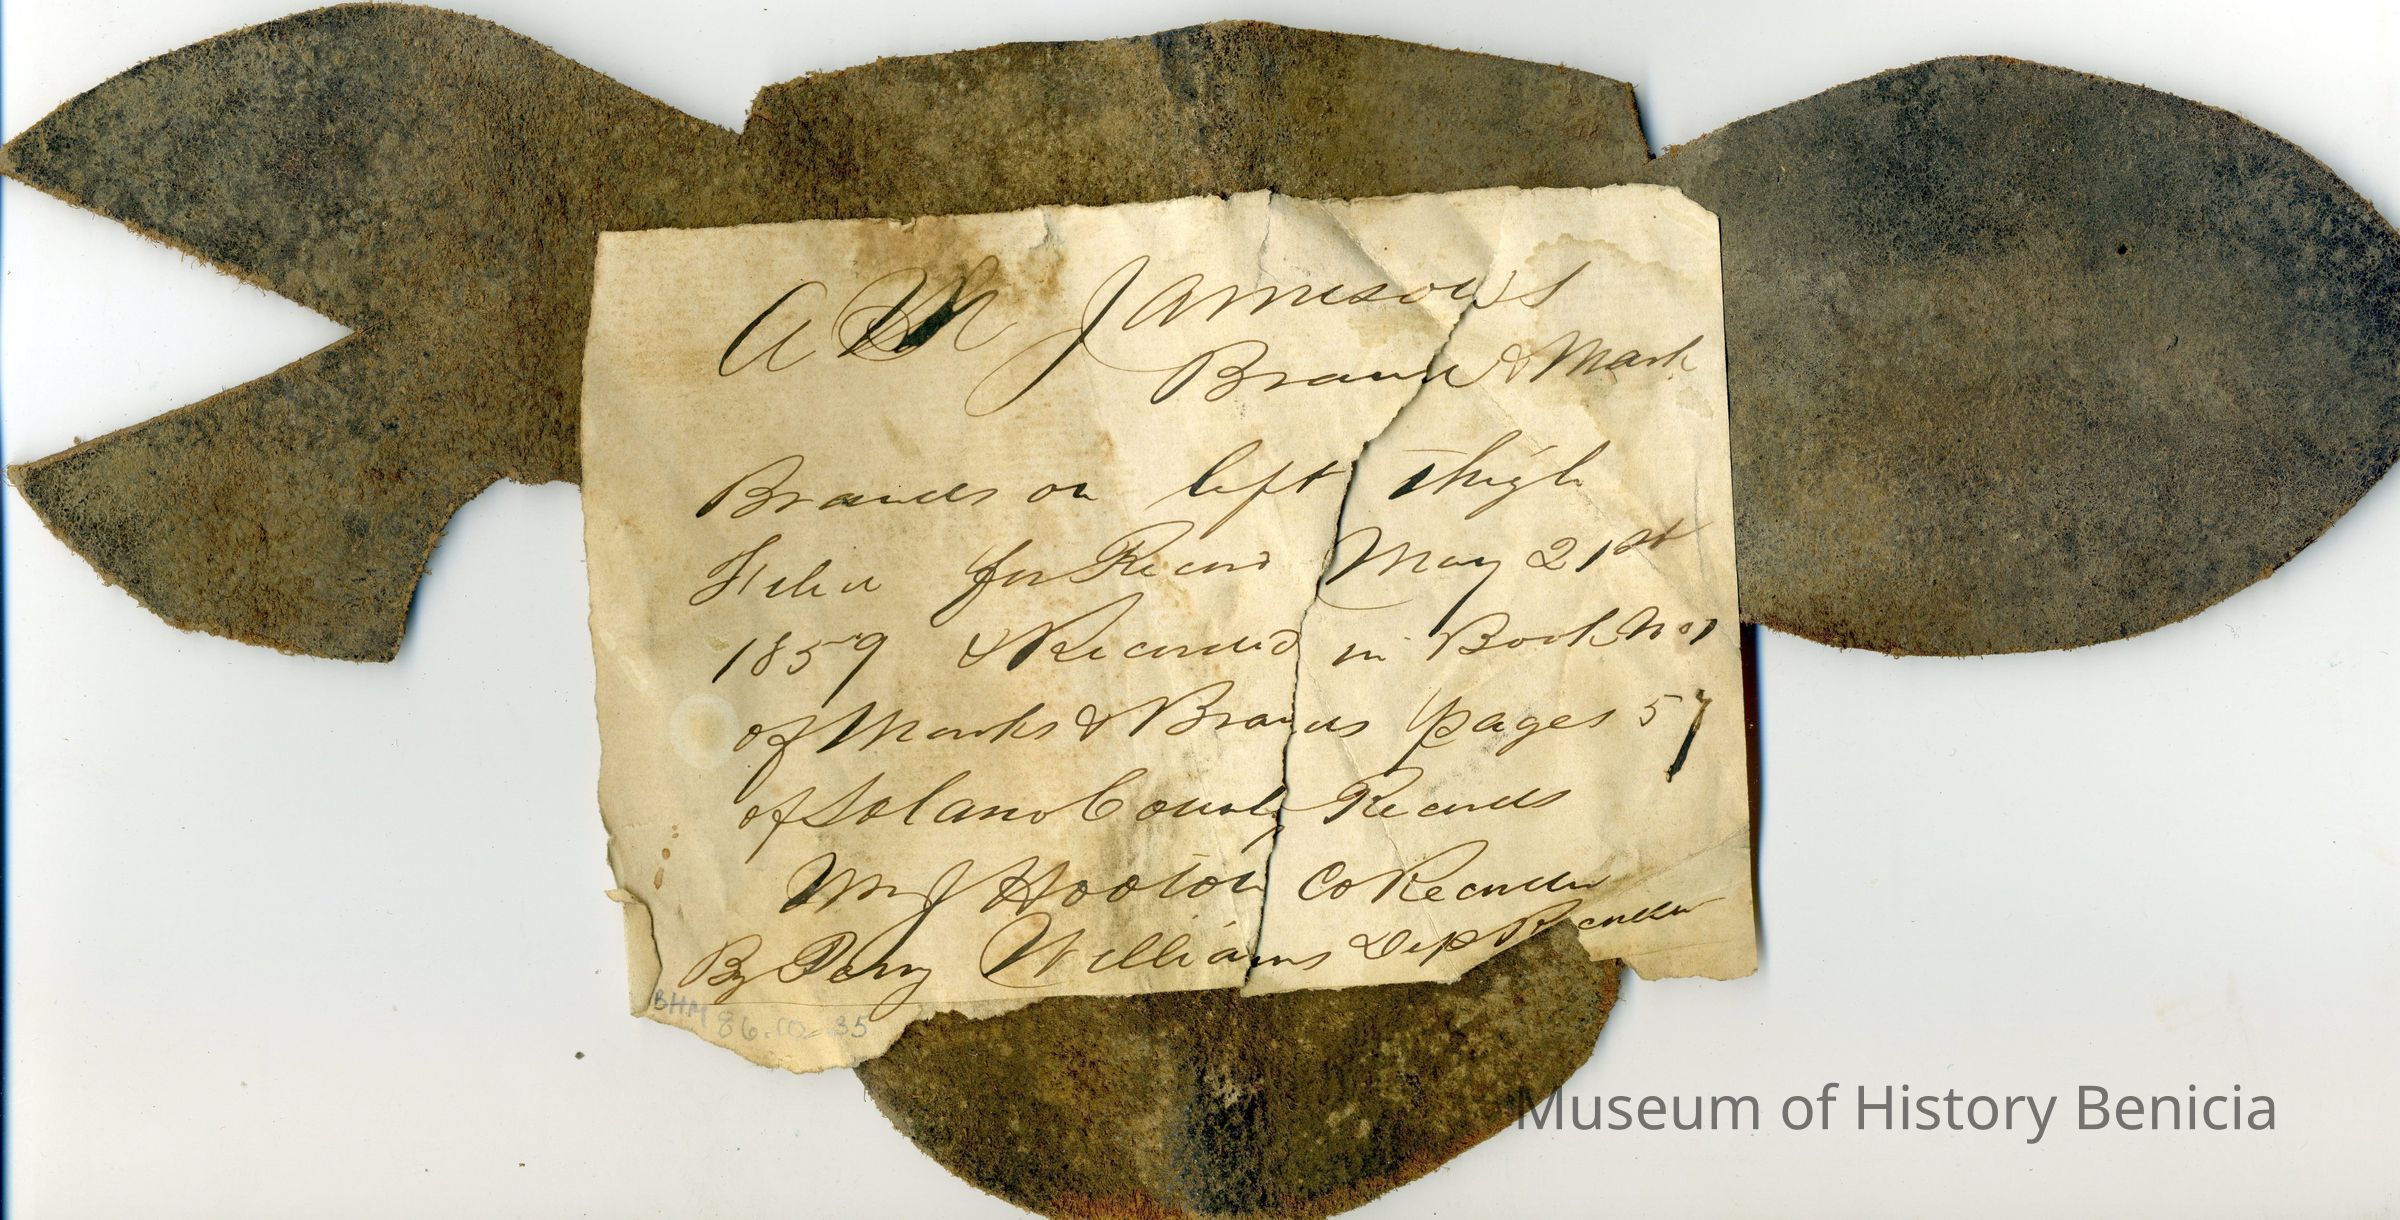 A Jamison's
Brand & Mark
Brands on left Thigh
Filed for Record May 21st
1859 & Recorded in Book No 1
of Marks & Brands pages 57
of Solano County Records
Wm J Hooton Co Recorder
By Perry Williams Dep Recorder
BHM 86.10.35
Museum of History Benicia